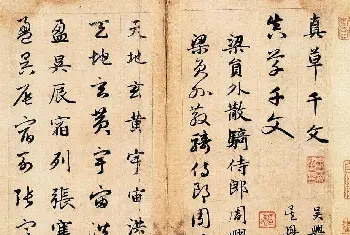 真草千文
真草千文
吳興
吳興
梁員外散騎侍郎周興
梁員外散騎侍郎周
天地玄黃宇宙洪
天地玄黃宇宙洪
盈昃辰宿列張寒
盈昃辰宿列張